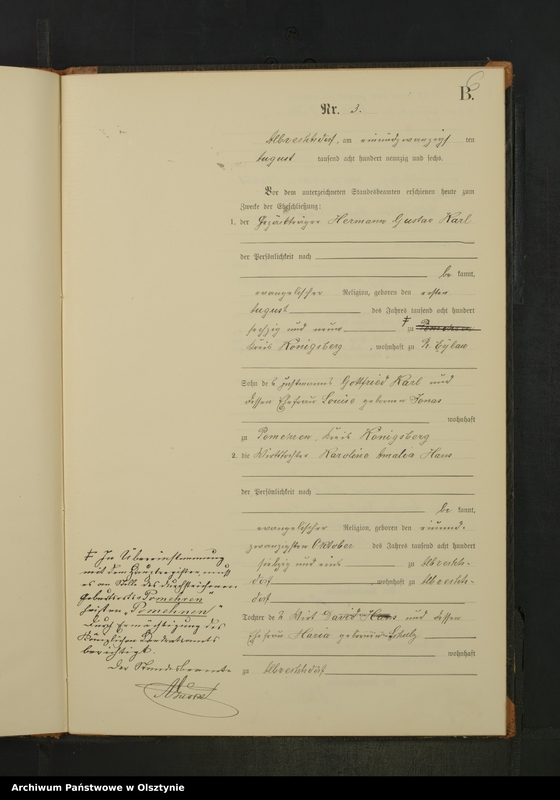 B.
6
Nr. 3.
Albrechtsdorf, am einundzwanzigsten
August tausend acht hundert neunzig und sechs.
Vor dem unterzeichneten Standesbeamten erschienen heute zum
Zwecke der Eheschließung:
1. der Hermann Gustav Karl
der Persönlichkeit nach
be kannt,
evangelischer Religion, geboren den ersten
August des Jahres tausend acht hundert
sechzig und neun zu
Kreis Königsberg, wohnhaft zu Pr. Eylau
Sohn des Gottfried Karl und
dessen Ehefrau Louise geborenen Jonas
wohnhaft
zu Pomehnen, Kreis Königsberg
2. die Wirthstochter Karoline Amalia Hans
der Persönlichkeit nach
be kannt,
evangelischer Religion, geboren den einund-
zwanzigsten Oktober des Jahres tausend acht hundert
siebzig und eins zu Albrechts-
dorf, wohnhaft zu Albrechts-
dorf
Tochter des Wirth David Hans und dessen
Ehefrau Maria geborenen Schulz
wohnhaft
zu Albrechtsdorf
In Übereinstimmung
mit dem Hauptregister muß
es an Stelle des durchstrichenen
Geburtsortes "Pomehren"
heißen "Pomehnen"
durch Ermächtigung des
Königlichen Landratsamts
berichtigt.
Der Standesbeamte
Archiwum Państwowe w Olsztynie